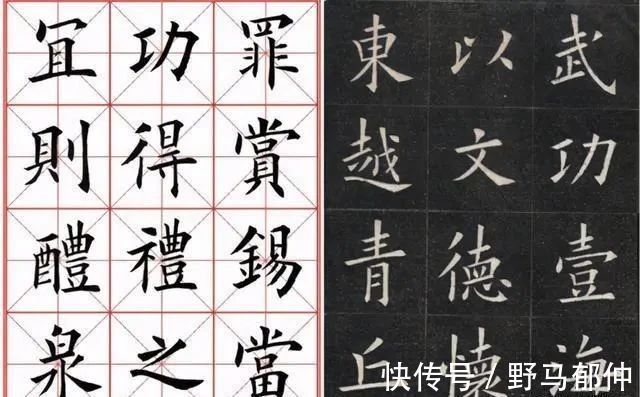 罪賞錫當
功得禮之
冝則醴泉
武功壹海
以文德懷
東越青丘
快传号 / 野马郁仲